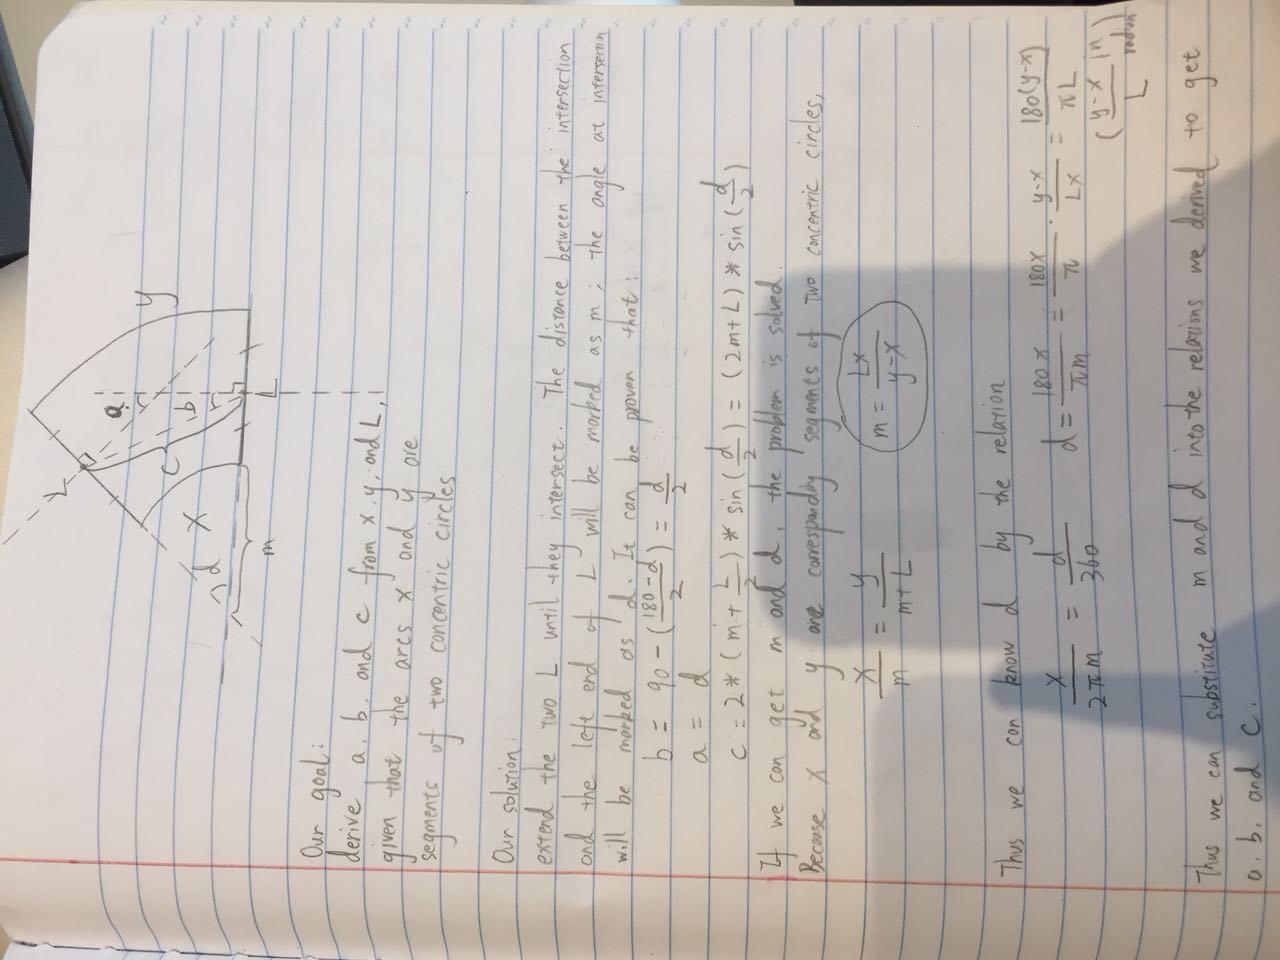 a
y
b
L
c
L
x
d
m
Our goal:
derive a, b, and c from x, y, and L,
given that the arcs x and y are
segments of two concentric circles
Our solution:
extend the two L until they intersect. The distance between the intersection
and the left end of L will be marked as m; the angle at intersection
will be marked as d. It can be proven that:
b = 90 - (180-d / 2) = d/2
a = d
c = 2*(m + L/2) * sin(d/2) = (2m+L) * sin(d/2)
If we can get m and d, the problem is solved.
Because x and y are correspondly segments of two concentric circles,
x/m = y/m+L    m = Lx/y-x
Thus we can know d by the relation
x/2πm = d/360    d = 180x/πm = 180x/π · y-x/Lx = 180(y-x)/πL
(y-x/L in radian)
Thus we can substitute m and d into the relations we derived to get
a, b, and c.